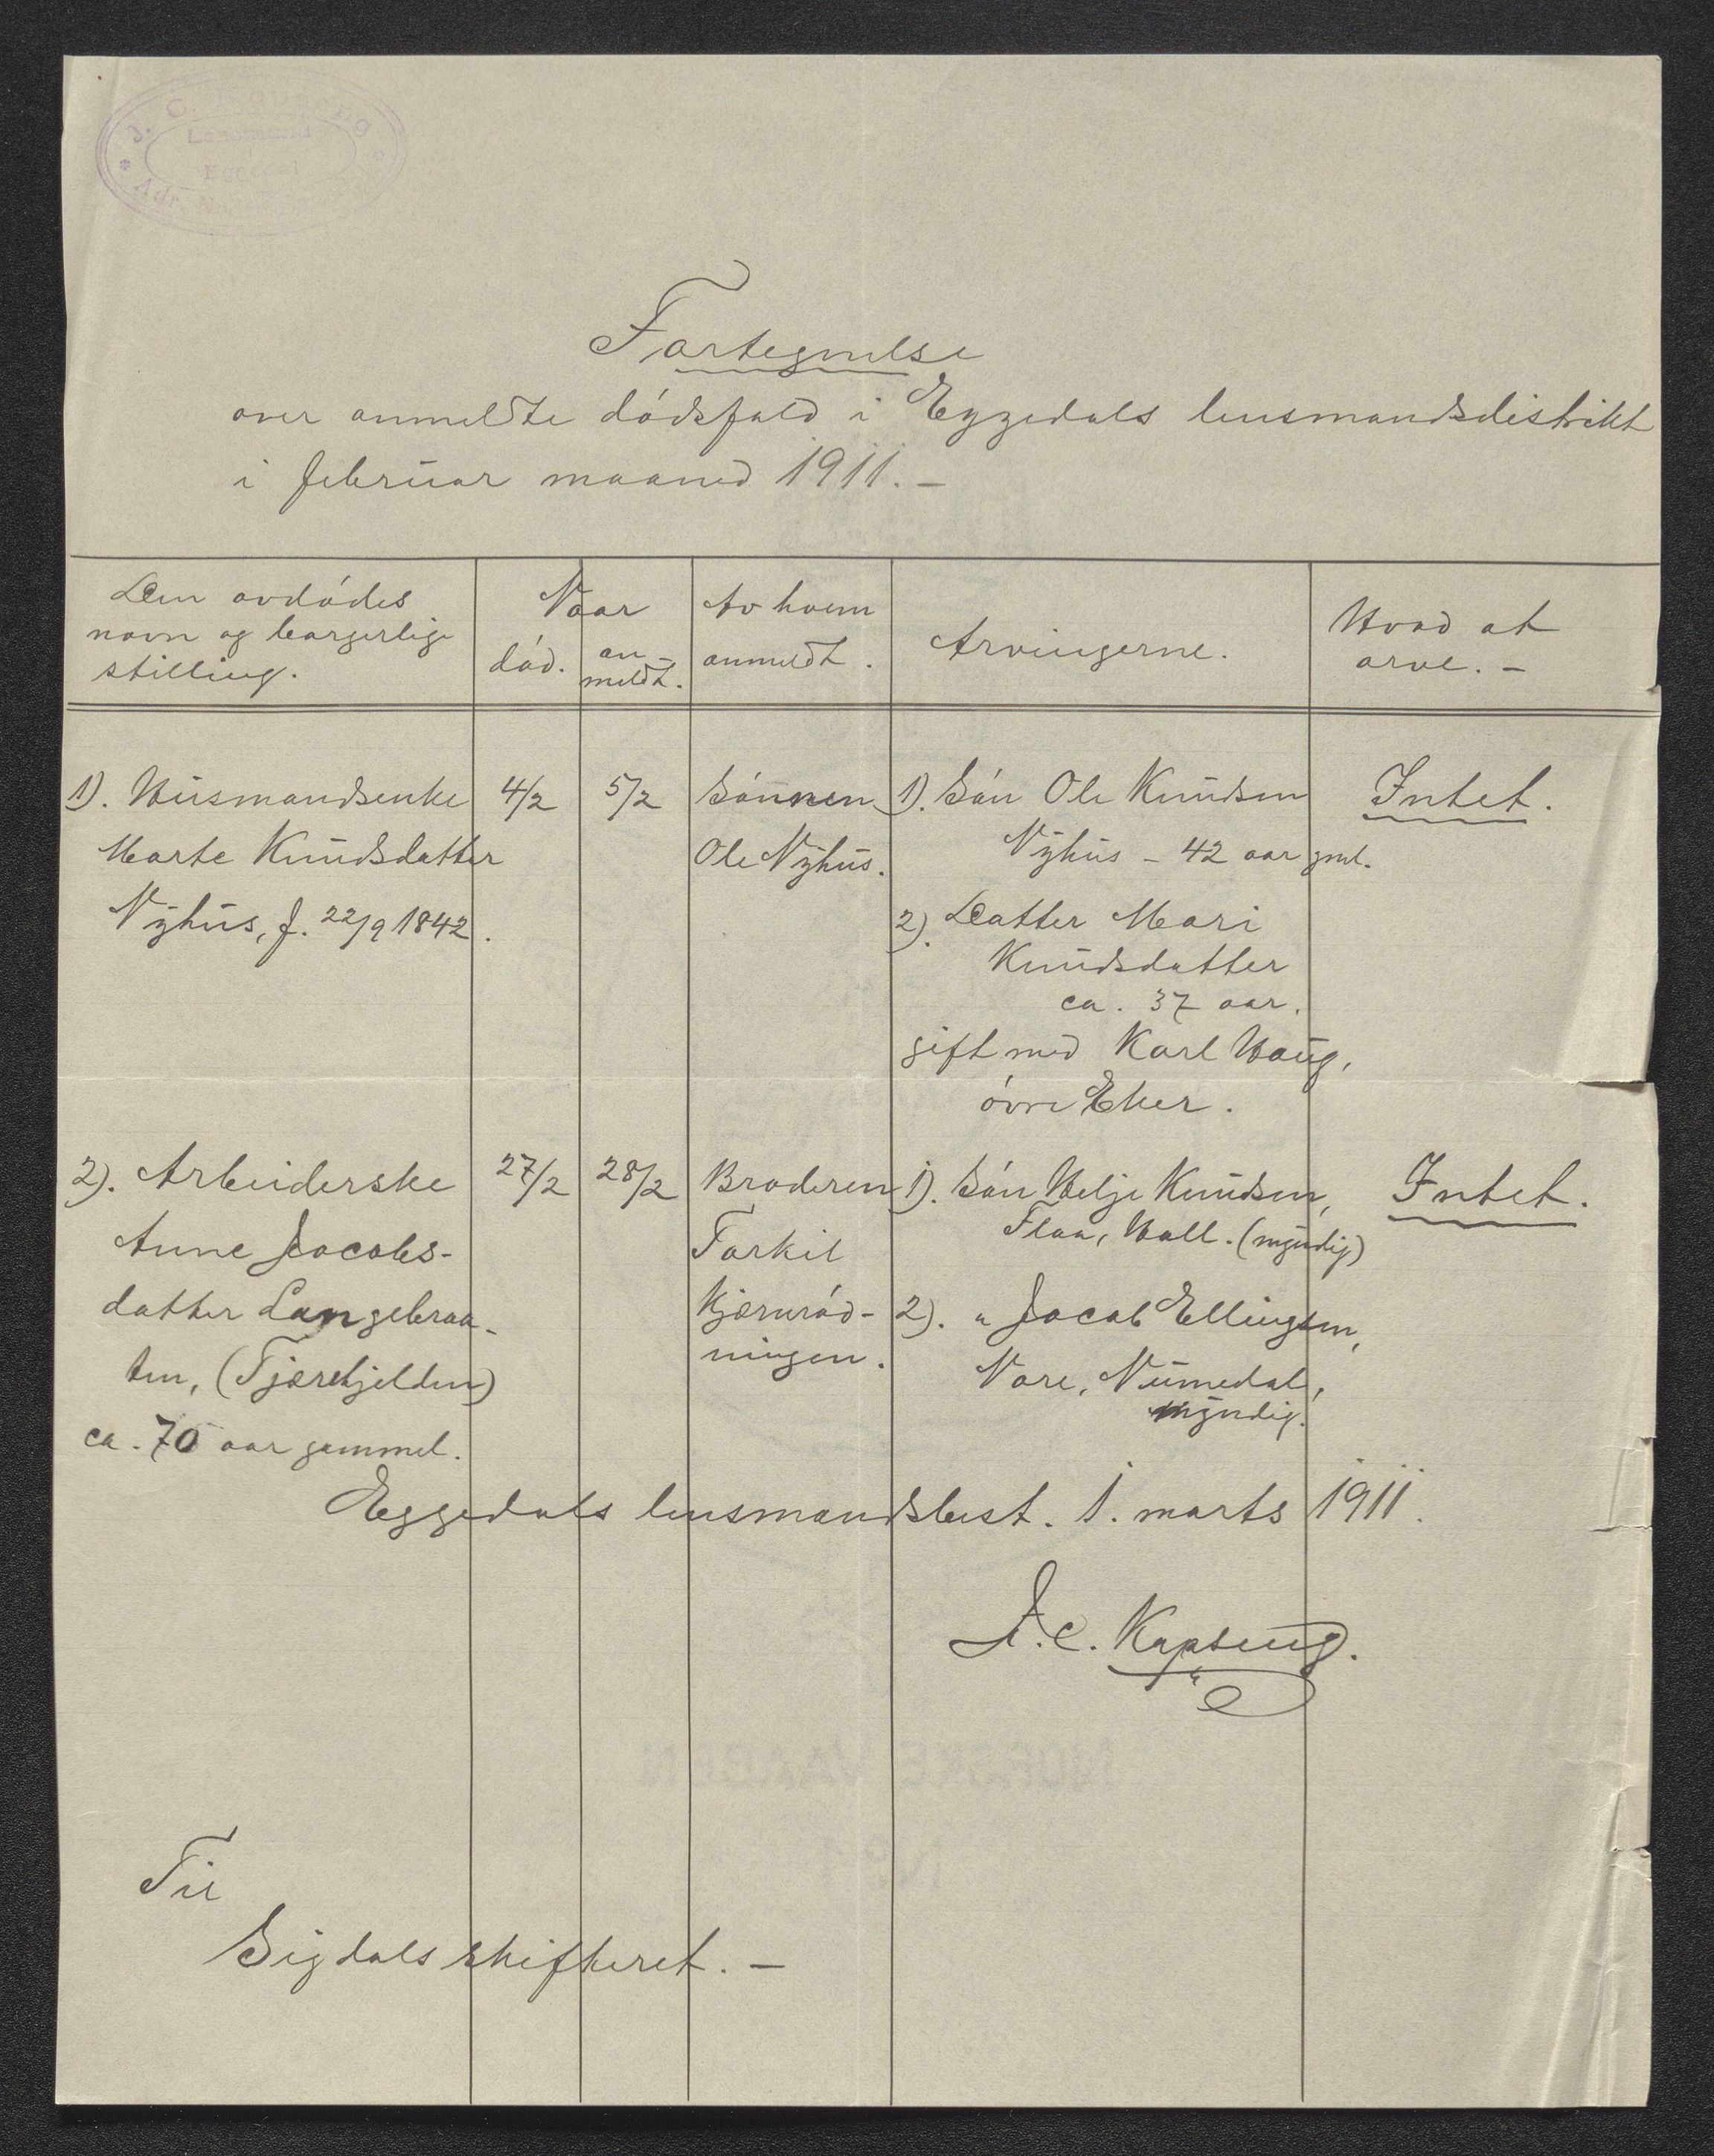 Fortegnelse
over anmeldte dødsfald i Eggedals lensmandsdistrikt
i februar maaned 1911. –
Den avdødes
navn og borgerlige
stilling.
Naar
død.
an-
meldt.
Av hvem
anmeldt.
Arvingerne.
Hvad at
arve. –
1). Husmandsenke
Marte Knudsdatter
Nyhus, f. 22/9 1842.
4/2
5/2
Sønnen
Ole Nyhus.
1). Søn Ole Knudsen
Nyhus – 42 aar gml.
2). Datter Mari
Knudsdatter
ca. 37 aar.
gift med Karl Haug,
øvre Eker.
Intet.
2). Arbeiderske
Anne Jacobs-
datter Langebraa-
ten, (Tjærekjelden)
ca. 70 aar gammel.
27/2
28/2
Broderen
Torkil
Kjørnrød-
ningen.
1). Søn Helje Knudsen,
Flaa, Hall. (myndig)
2). " Jacob Ellingsen,
Nore, Numedal,
myndig.
Intet.
Eggedals lensmandsbest. 1. marts 1911.
J. C. Kopseng.
Til
Sigdals skifteret. –